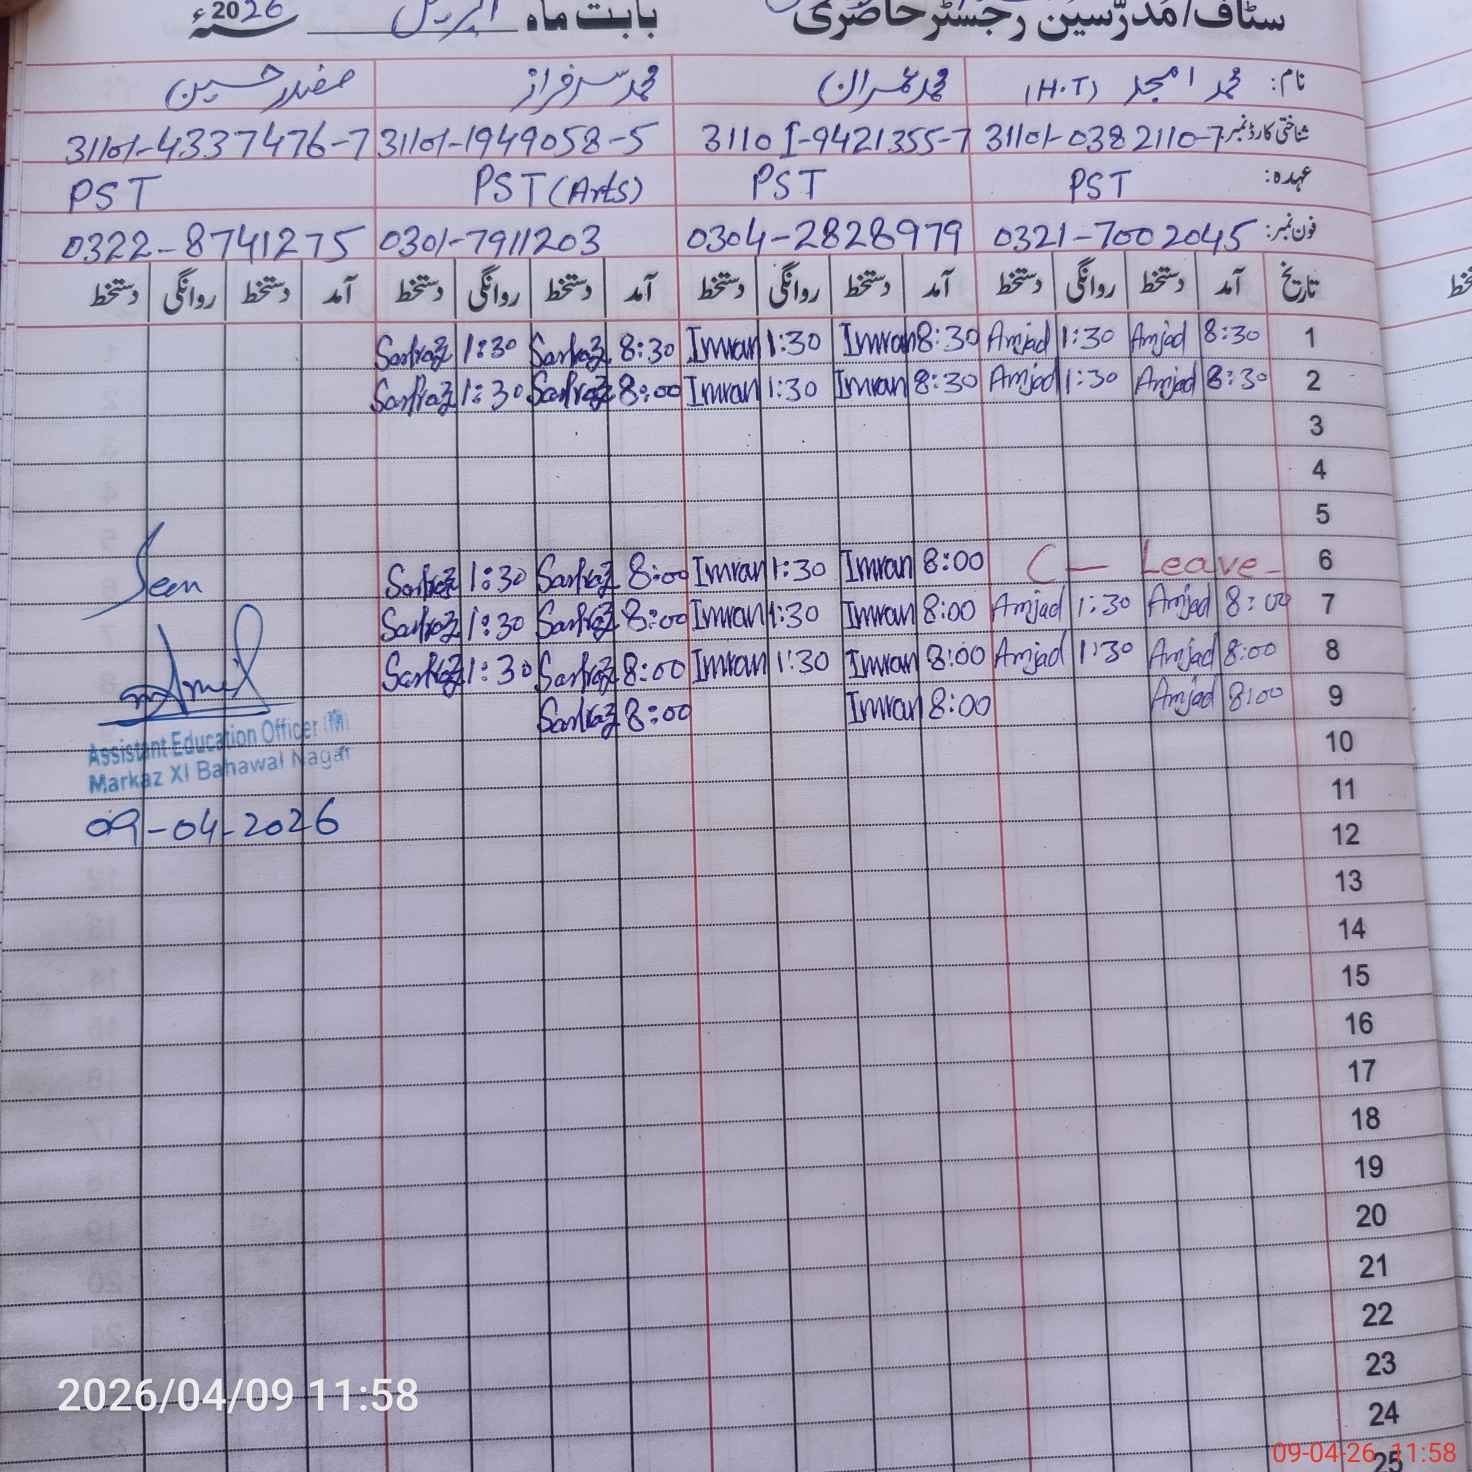 سٹاف/مدرّسین رجسٹر حاضری بابت ماہ اپریل 2026ء
نام: محمد امجد (H.T) محمد عمران محمد سرفراز صفدر حسین
شناختی کارڈ نمبر 31101-0382110-7 31101-9421355-7 31101-1949058-5 31101-4337476-7
عہدہ: PST PST PST (Arts) PST
فون نمبر: 0321-7002045 0304-2828979 0301-7911203 0322-8741275
تاریخ آمد دستخط روانگی دستخط آمد دستخط روانگی دستخط آمد دستخط روانگی دستخط آمد دستخط روانگی دستخط
1 8:30 Amjad 1:30 Amjad 8:30 Imran 1:30 Imran 8:30 Sarfraz 1:30 Sarfraz
2 8:30 Amjad 1:30 Amjad 8:30 Imran 1:30 Imran 8:00 Sarfraz 1:30 Sarfraz
3
4
5
6 C — Leave - 8:00 Imran 1:30 Imran 8:00 Sarfraz 1:30 Sarfraz
7 8:00 Amjad 1:30 Amjad 8:00 Imran 1:30 Imran 8:00 Sarfraz 1:30 Sarfraz
8 8:00 Amjad 1:30 Amjad 8:00 Imran 1:30 Imran 8:00 Sarfraz 1:30 Sarfraz
9 8:00 Amjad 8:00 Imran 8:00 Sarfraz
10
11
12
13
14
15
16
17
18
19
20
21
22
23
24
25
Seen
Assistant Education Officer
Markaz XI Bahawal Nagar
09-04-2026
2026/04/09 11:58
09-04-26 11:58